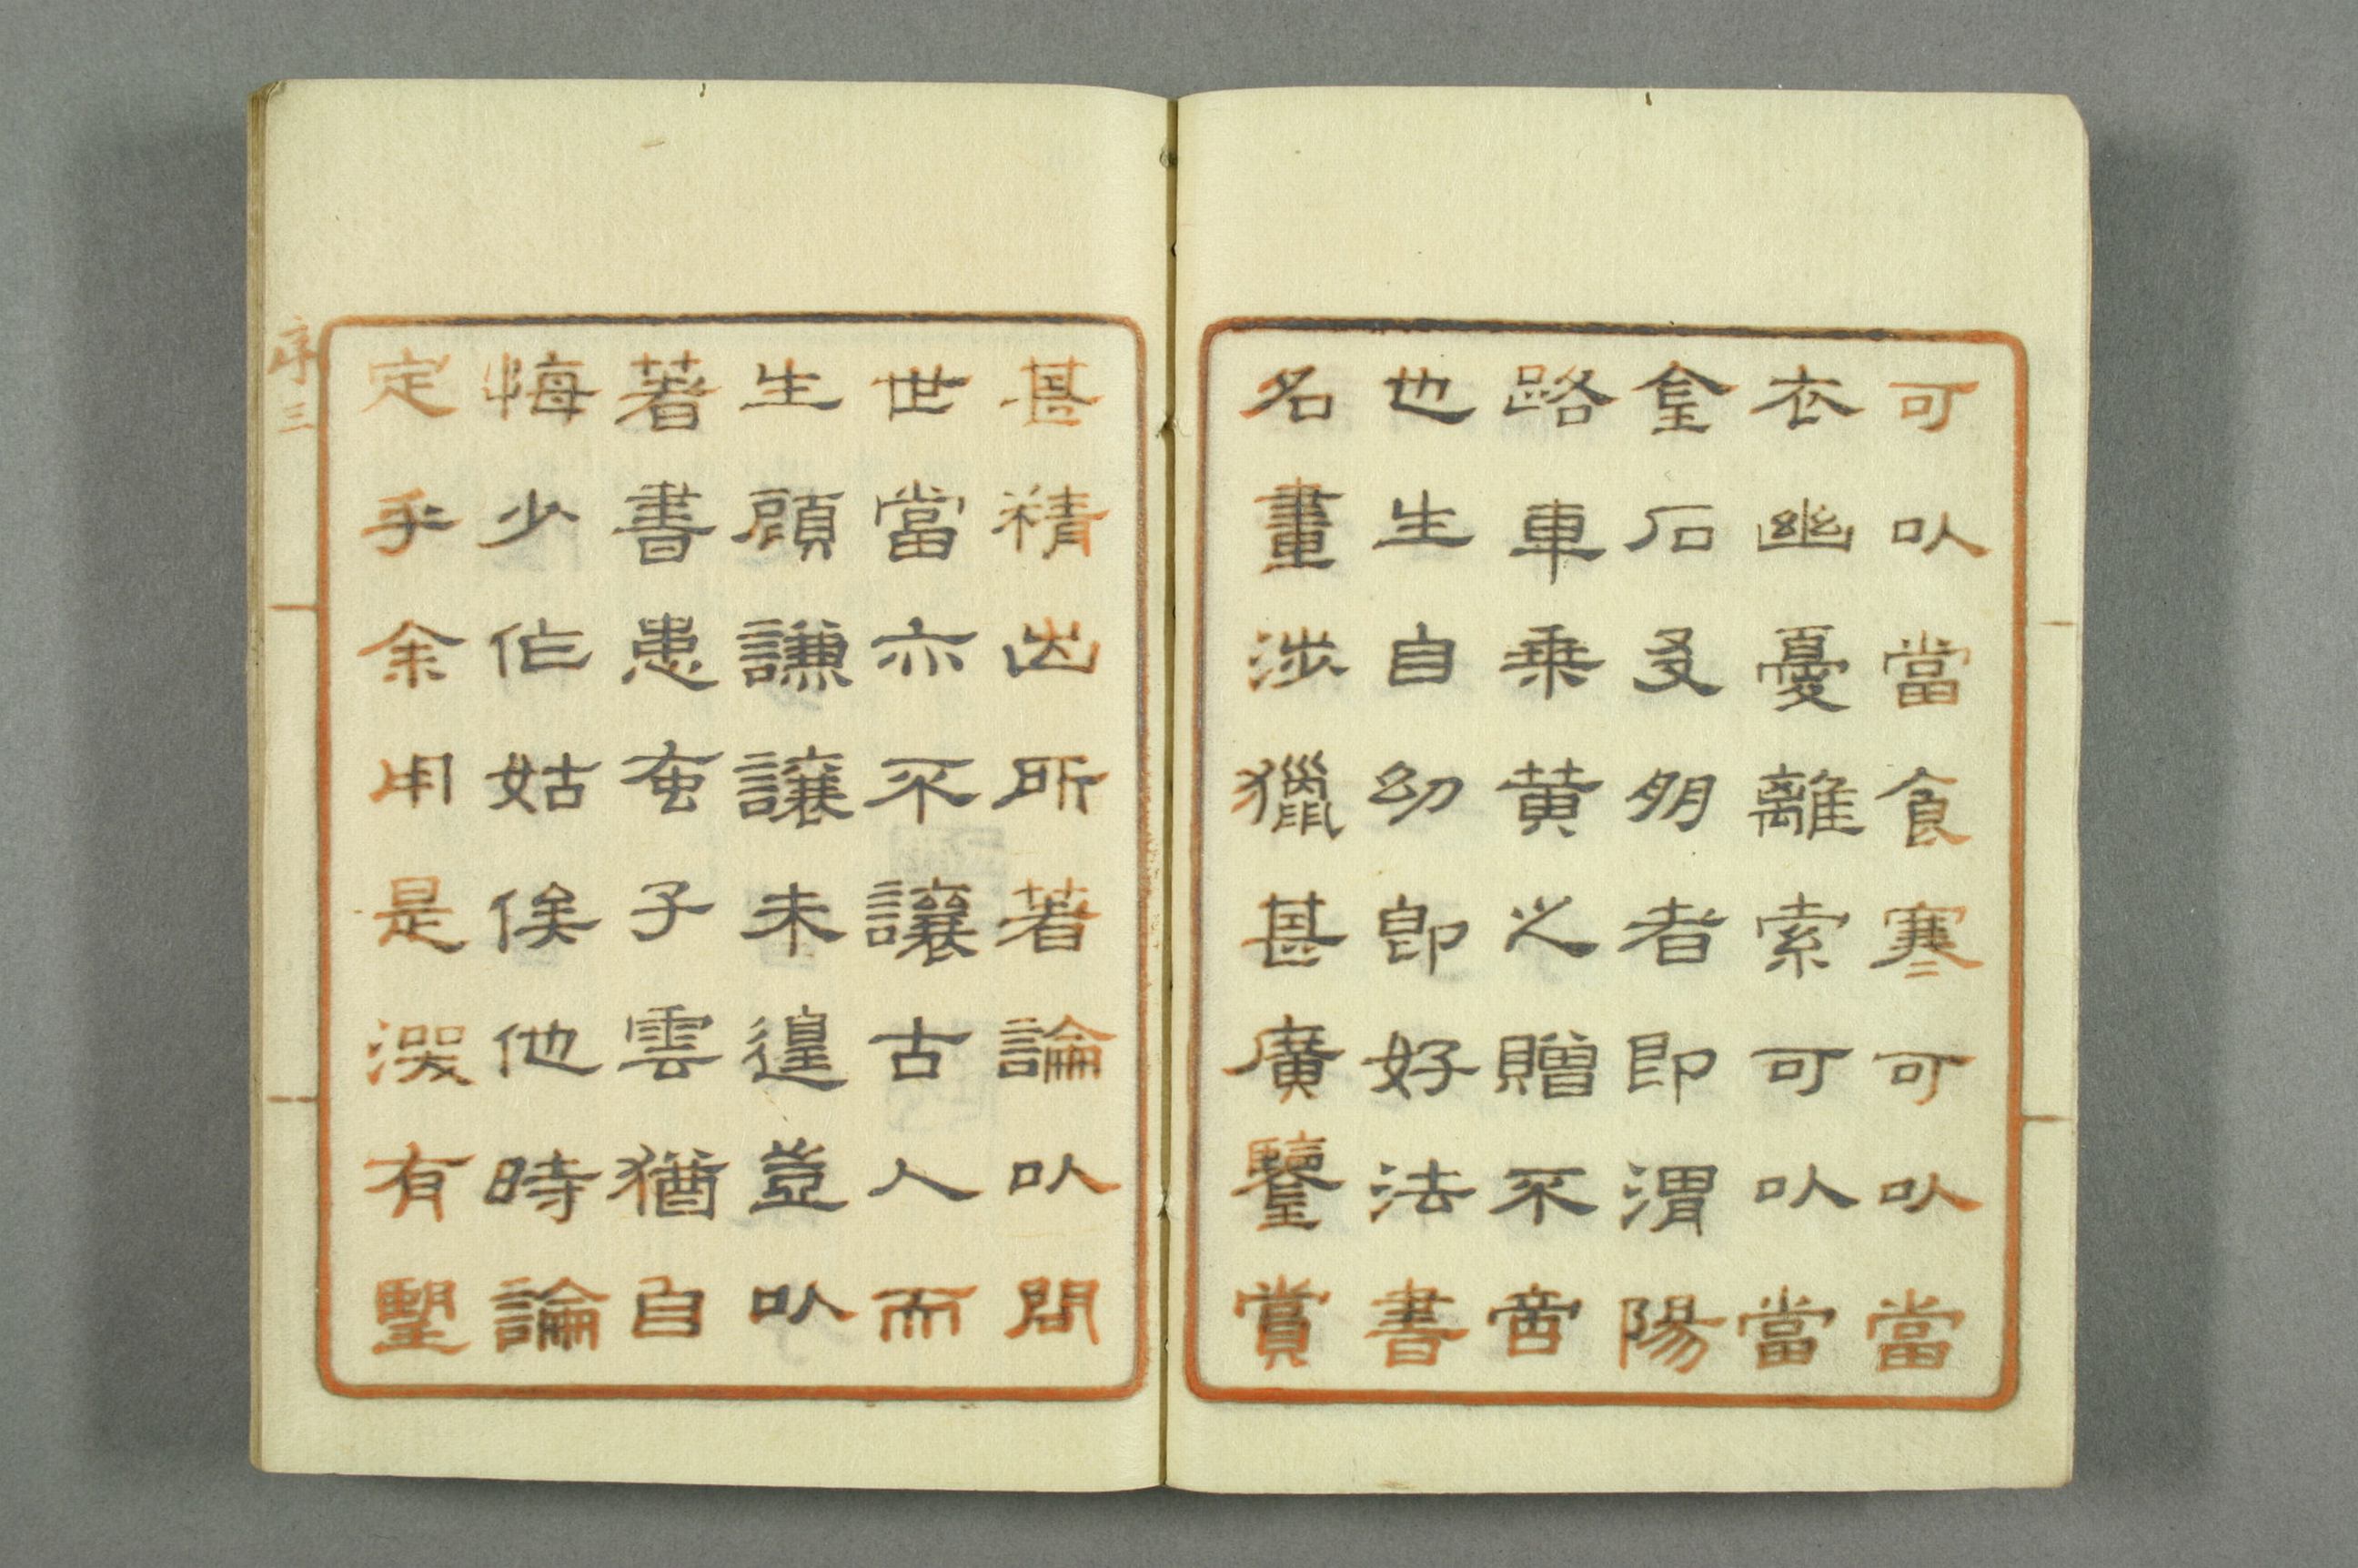 可㕥當食寒可㕥當
衣幽憂離索可㕥當
金石友朋者即渭陽
路車乗黄之贈不啻
也生自幼即好法書
名畫涉獵甚廣鑒賞
甚精出所著論㕥問
世當亦不讓古人而
生顧謙讓未遑豈㕥
著書患蚤子雲猶自
悔少作姑俟他時論
定乎余用是深有望
序三